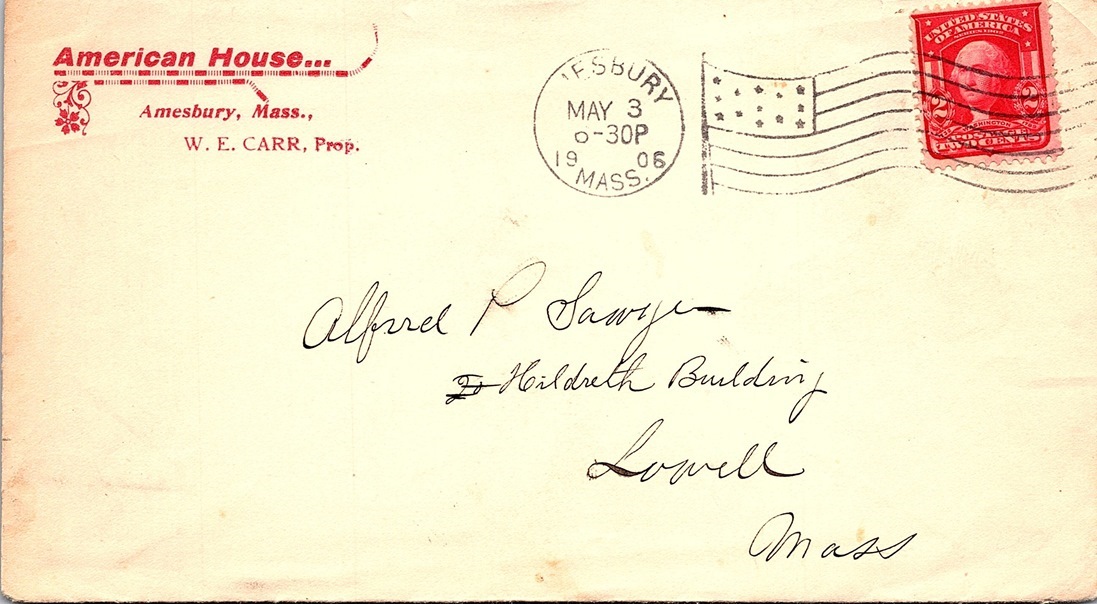 American House...
Amesbury, Mass.,
W. E. CARR, Prop.
ESBURY
MAY 3
6-30P
19 06
MASS.
UNITED STATES
OF AMERICA
SERIES 1902
2 2
WASHINGTON
TWO CENTS
Alfred P Sawyer
Hildreth Building
Lowell
Mass